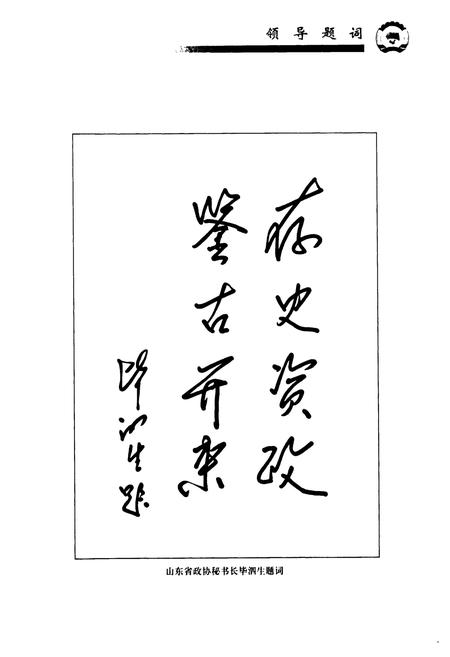 领导题词
存史资政
鉴古开来
毕泗生题
山东省政协秘书长毕泗生题词